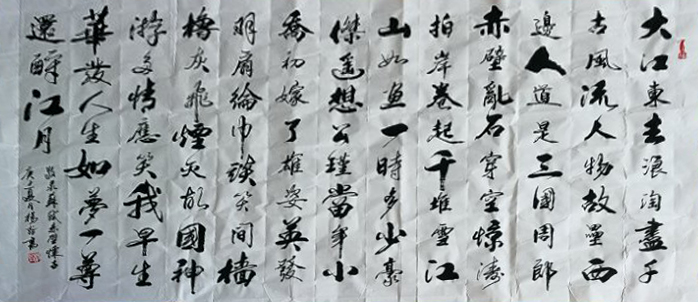 大江東去浪淘盡千
古風流人物故壘西
邊人道是三國周郎
赤壁亂石穿空惊濤
拍岸卷起千堆雪江
山如画一時多少豪
傑遥想公瑾當年小
喬初嫁了雄姿英發
羽扇綸巾談笑間檣
櫓灰飛煙灭故國神
游多情應笑我早生
華發人生如夢一尊
還酹江月
蘇軾赤壁懷古
庚子夏月楊書